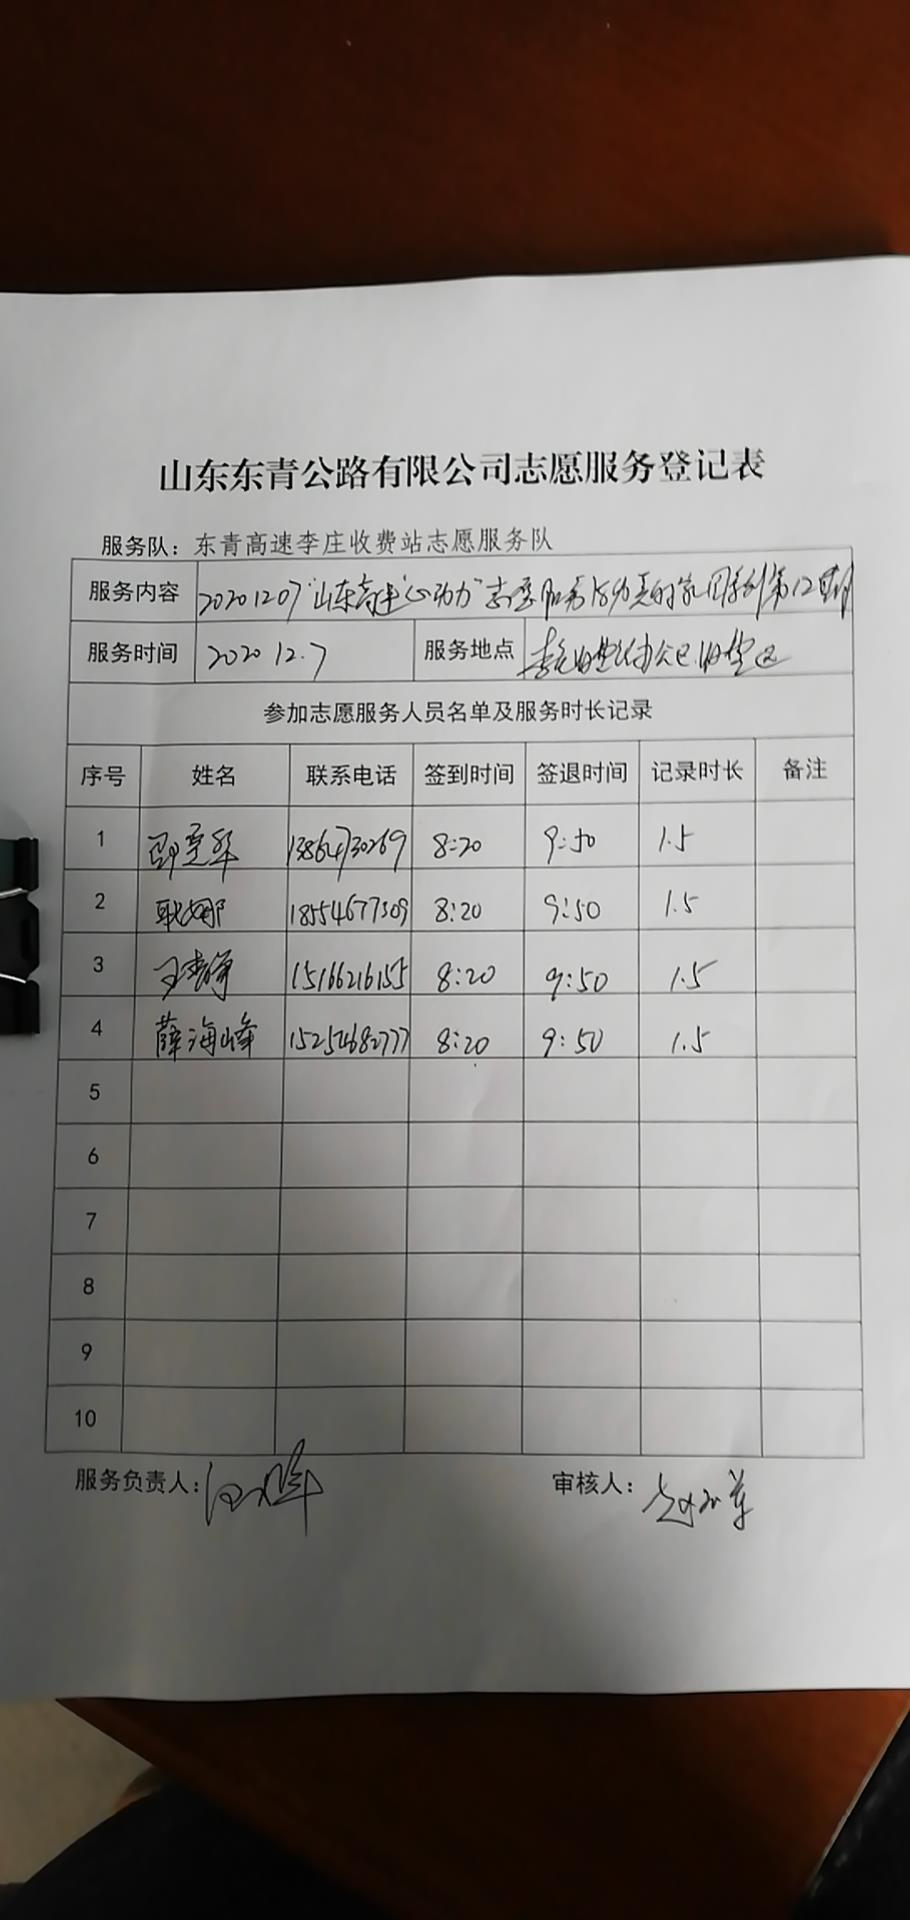 山东东青公路有限公司志愿服务登记表
服务队：东青高速李庄收费站志愿服务队
服务内容 20201207"山东高速"心动力"志愿服务 最美的家园系列第12期
服务时间 2020 12.7 服务地点 李庄收费站办公区.收费区
参加志愿服务人员名单及服务时长记录
序号 姓名 联系电话 签到时间 签退时间 记录时长 备注
1 13864730269 8:20 9:50 1.5
2 耿娜 18554677309 8:20 9:50 1.5
3 15166216155 8:20 9:50 1.5
4 薛海峰 15254682777 8:20 9:50 1.5
5
6
7
8
9
10
服务负责人： 审核人：